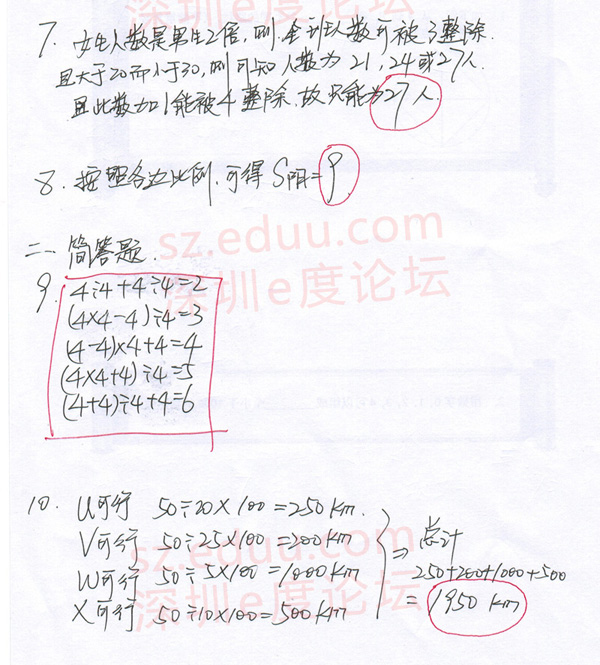 7. 女生人数是男生2倍,则全部人数可被3整除.
且大于20而小于30,则可知人数为21,24或27人.
且此数加1能被4整除,故只能为27人.
8. 按照各边比例,可得S阴=9
二、简答题.
9. 4÷4+4÷4=2
(4×4-4)÷4=3
(4-4)×4+4=4
(4×4+4)÷4=5
(4+4)÷4+4=6
10. U可行 50÷20×100=250km.
V可行 50÷25×100=200km
W可行 50÷5×100=1000km
X可行 50÷10×100=500km
⇒ 总计
250+200+1000+500
=1950 km
深圳e度论坛
sz.eduu.com
深圳e度论坛
sz.eduu.com
深圳e度论坛